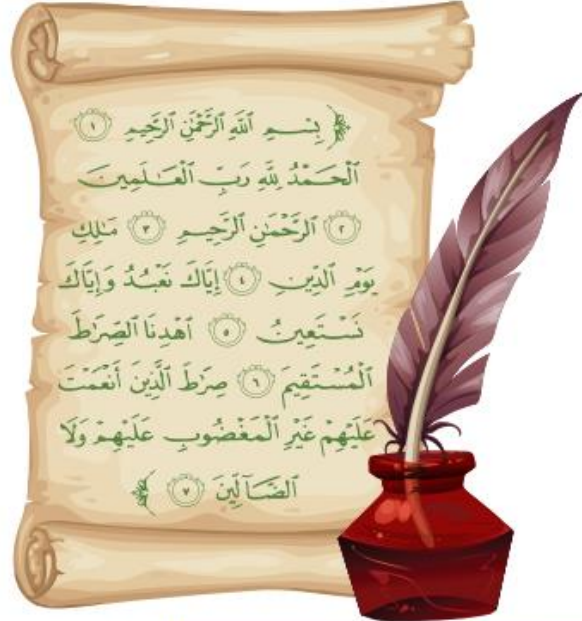 ﴿ بِسْمِ ٱللَّهِ ٱلرَّحْمَٰنِ ٱلرَّحِيمِ ١
ٱلْحَمْدُ لِلَّهِ رَبِّ ٱلْعَٰلَمِينَ
٢ ٱلرَّحْمَٰنِ ٱلرَّحِيمِ ٣ مَٰلِكِ
يَوْمِ ٱلدِّينِ ٤ إِيَّاكَ نَعْبُدُ وَإِيَّاكَ
نَسْتَعِينُ ٥ ٱهْدِنَا ٱلصِّرَٰطَ
ٱلْمُسْتَقِيمَ ٦ صِرَٰطَ ٱلَّذِينَ أَنْعَمْتَ
عَلَيْهِمْ غَيْرِ ٱلْمَغْضُوبِ عَلَيْهِمْ وَلَا
ٱلضَّآلِّينَ ٧ ﴾